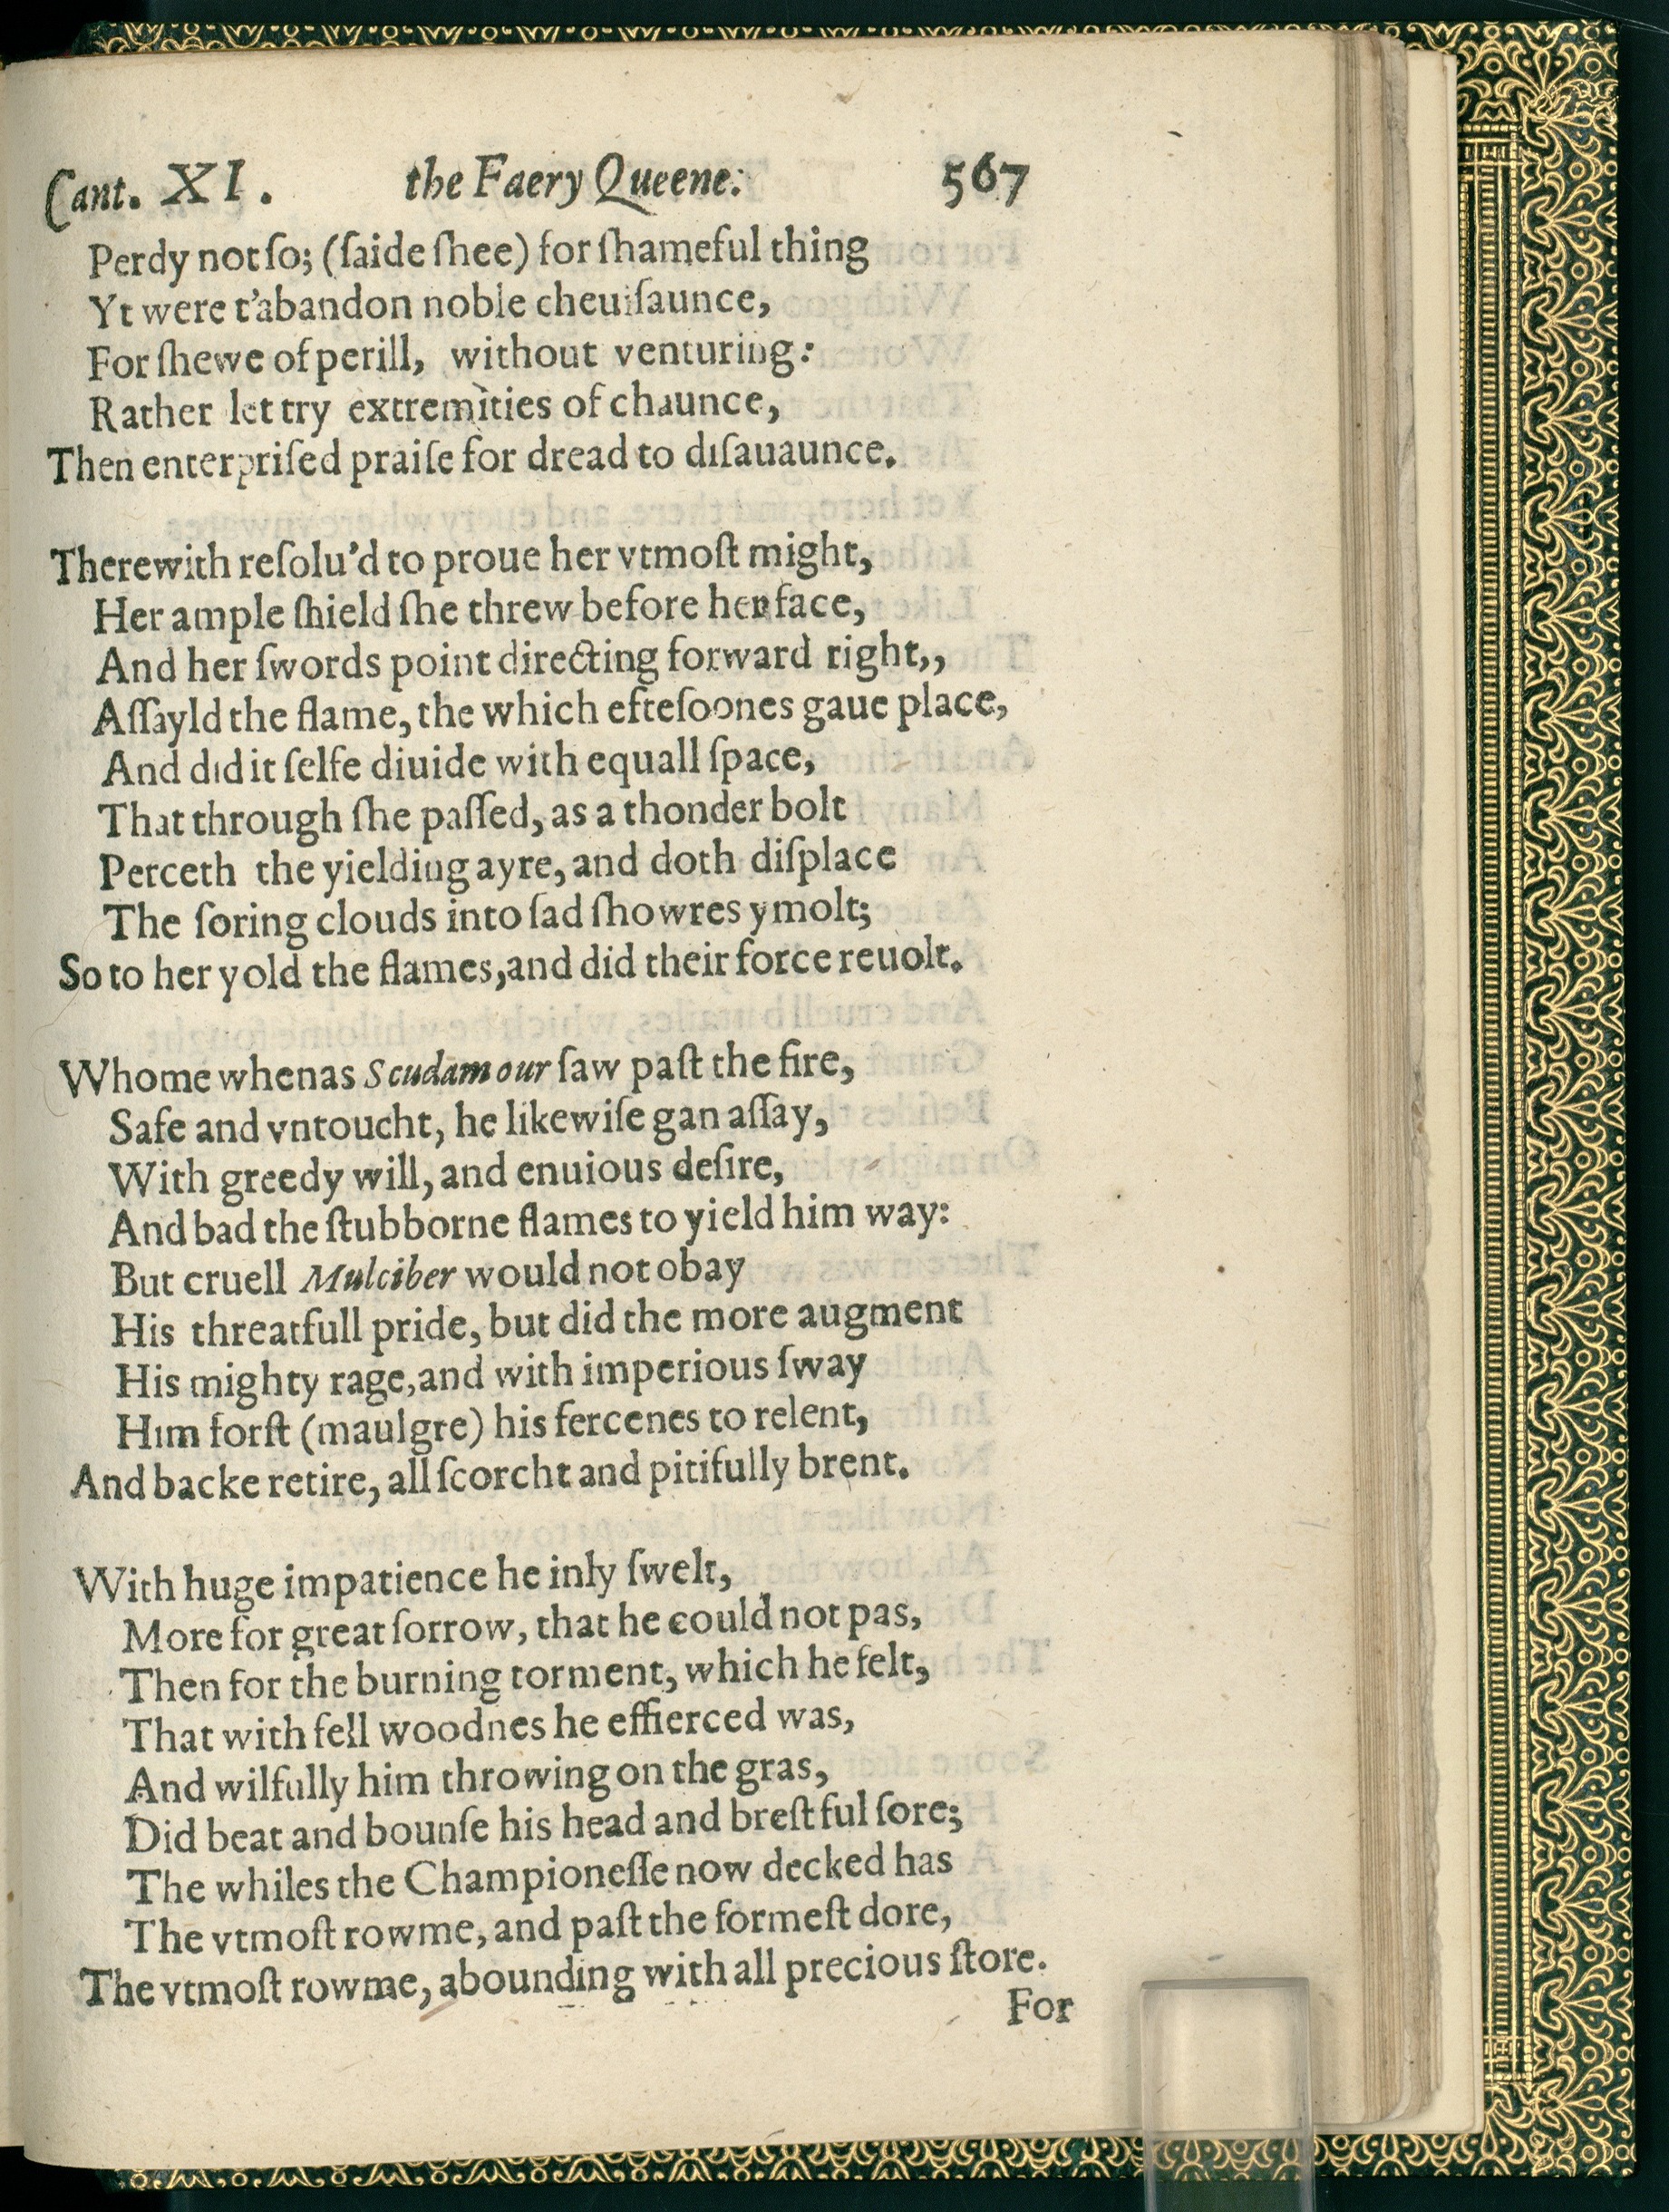 Cant. XI. the Faery Queene. 567
Perdy not ſo; (ſaide ſhee) for ſhameful thing
Yt were t'abandon noble cheuiſaunce,
For ſhewe of perill, without venturing:
Rather let try extremities of chaunce,
Then enterpriſed praiſe for dread to diſauaunce.
Therewith reſolu'd to proue her vtmoſt might,
Her ample ſhield ſhe threw before her face,
And her ſwords point directing forward right,,
Aſſayld the flame, the which efteſoones gaue place,
And did it ſelfe diuide with equall ſpace,
That through ſhe paſſed, as a thonder bolt
Perceth the yielding ayre, and doth diſplace
The ſoring clouds into ſad ſhowres ymolt;
So to her yold the flames, and did their force reuolt.
Whome whenas Scudamour ſaw paſt the fire,
Safe and vntoucht, he likewiſe gan aſſay,
With greedy will, and enuious deſire,
And bad the ſtubborne flames to yield him way:
But cruell Mulciber would not obay
His threatfull pride, but did the more augment
His mighty rage, and with imperious ſway
Him forſt (maulgre) his fercenes to relent,
And backe retire, all ſcorcht and pitifully brent.
With huge impatience he inly ſwelt,
More for great ſorrow, that he could not pas,
Then for the burning torment, which he felt,
That with fell woodnes he effierced was,
And wilfully him throwing on the gras,
Did beat and bounſe his head and breſt ful ſore;
The whiles the Championeſſe now decked has
The vtmoſt rowme, and paſt the formeſt dore,
The vtmoſt rowme, abounding with all precious ſtore.
For